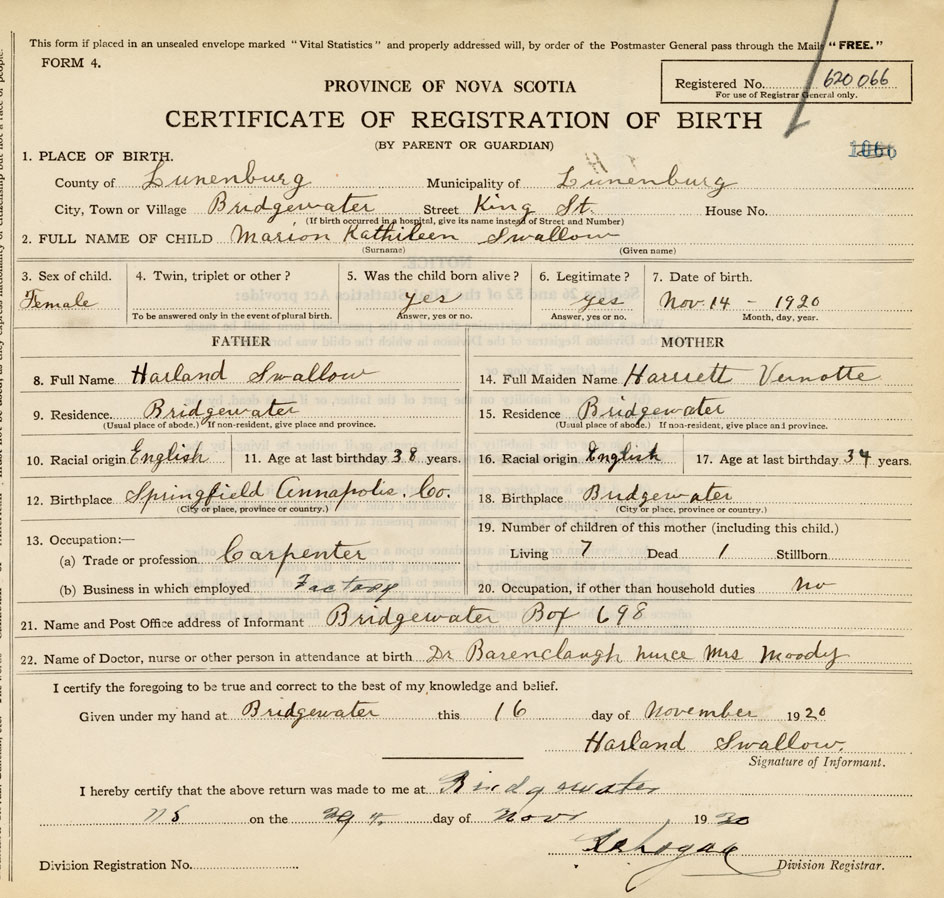 This form if placed in an unsealed envelope marked "Vital Statistics" and properly addressed will, by order of the Postmaster General pass through the Mails "FREE."
FORM 4.
PROVINCE OF NOVA SCOTIA
Registered No. 620 066
For use of Registrar General only.
CERTIFICATE OF REGISTRATION OF BIRTH
(BY PARENT OR GUARDIAN)
1. PLACE OF BIRTH.
County of Lunenburg Municipality of Lunenburg
City, Town or Village Bridgewater Street King St. House No.
(If birth occurred in a hospital, give its name instead of Street and Number)
2. FULL NAME OF CHILD Marion Kathileen Swallow
(Surname) (Given name)
3. Sex of child. 4. Twin, triplet or other? 5. Was the child born alive? 6. Legitimate? 7. Date of birth.
Female yes yes Nov. 14 - 1920
To be answered only in the event of plural birth. Answer, yes or no. Answer, yes or no. Month, day, year.
FATHER
8. Full Name Harland Swallow
9. Residence. Bridgewater
(Usual place of abode.) If non-resident, give place and province.
10. Racial origin English 11. Age at last birthday 38 years.
12. Birthplace Springfield Annapolis. Co.
(City or place, province or country.)
13. Occupation:—
(a) Trade or profession Carpenter
(b) Business in which employed Factory
MOTHER
14. Full Maiden Name Harriett Vernotte
15. Residence Bridgewater
(Usual place of abode.) If non-resident, give place and province.
16. Racial origin English 17. Age at last birthday 34 years.
18. Birthplace Bridgewater
(City or place, province or country.)
19. Number of children of this mother (including this child.)
Living 7 Dead 1 Stillborn
20. Occupation, if other than household duties no
21. Name and Post Office address of Informant Bridgewater Box 698
22. Name of Doctor, nurse or other person in attendance at birth Dr Barenclaugh nurce Mrs Moody
I certify the foregoing to be true and correct to the best of my knowledge and belief.
Given under my hand at Bridgewater this 16 day of November 1920
Harland Swallow.
Signature of Informant.
I hereby certify that the above return was made to me at Bridgewater
NS on the 29th day of Nov 1920
Division Registration No. Division Registrar.